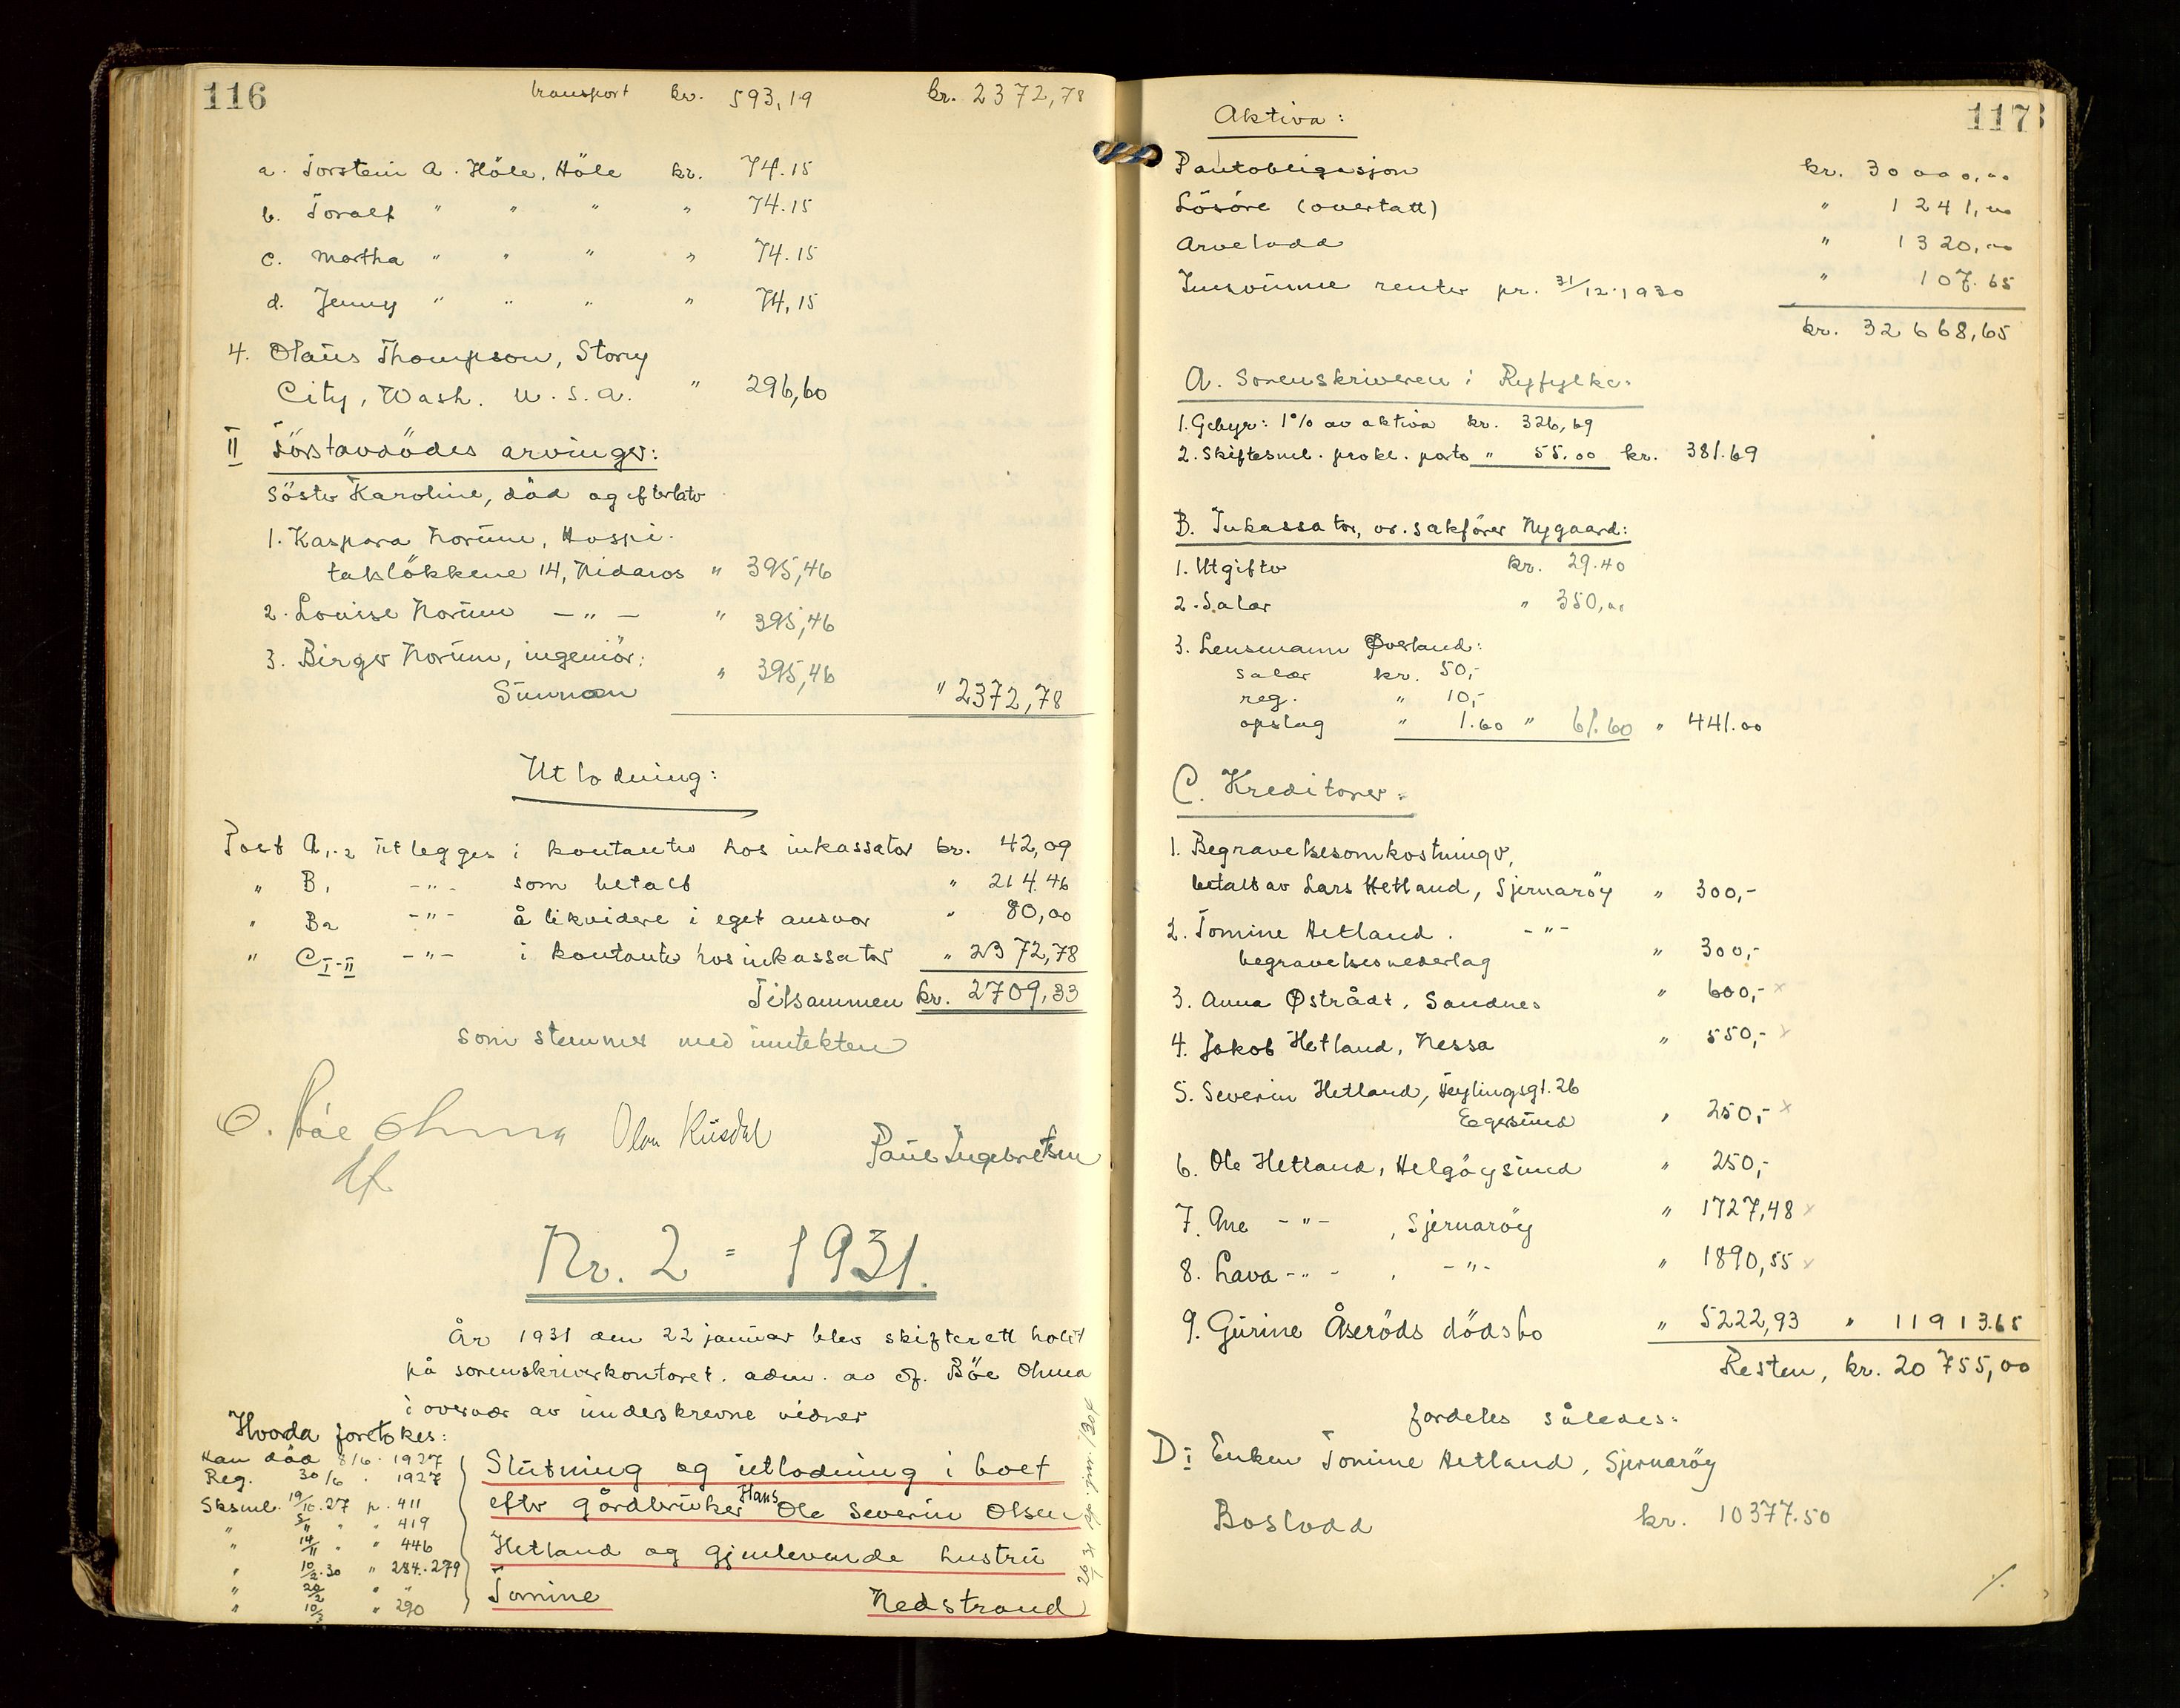 116
transport kr. 593,19 kr. 2372,78
a. Torstein A. Höle, Höle kr. 74.15
b. Toralf " " " " 74.15
c. Martha " " " " 74.15
d. Jenny " " " " 74,15
4. Olaus Thompson, Story
City, Wash. U.S.A. " 296,60
II Förstavdödes arvinger:
Söster Karoline, död og efterlatr
1. Kaspara Norum, Hospi-
talslökkene 14, Nidaros " 395,46
2. Louise Norum - " - " 395,46
3. Birger Norum, ingeniör,
Sunnan " 395,46 " 2372,78
Utlodning:
Post A,1-2 utlegges i kontanter hos inkassator kr. 42,09
" B1 - " - som betalt " 214.46
" B2 - " - å likvidere i eget ansvar " 80,00
" C I-II - " - i kontanter hos inkassator " 2372,78
Tilsammen kr. 2709,33
som stemmer med inntekten
O. Böe Ohma Olav Riisdal Paul Ingebretsen
df
Nr. 2 = 1931.
År 1931 den 22 januar blev skifterett holdt
på sorenskriverkontoret. adm. av df. Böe Ohma
i overvær av underskrevne vidner
Hvorda foretokes:
Han död 8/6. 1927
Reg. 30/6 . 1927
Sksml. 19/10.27 p. 411
" 5/11 " " 419
" 14/11 " " 446
" 10/2.30 " 284.279
" 20/2 " "
" 10/3 " 290
Slutning og utlodning i boet
eftr gårdbruker Hans Ole Severin Olsen
Hetland og gjenlevende hustru
Tomine Nedstrand
117
Aktiva:
Pantobligasjon kr. 30000,00
Lösöre (overtatt) " 1241,00
Arvelodd " 1320,00
Innvunne renter pr. 31/12.1930 " 107.65
kr. 32668,65
A. Sorenskriveren i Ryfylke:
1. Gebyr: 1% av aktiva kr. 326,69
2. Skiftesml. prokl. porto " 55.00 kr. 381.69
B. Inkassator, or. sakförer Nygaard:
1. Utgifter kr. 29.40
2. Salær " 350,00
3. Lensmann Øverland:
salær kr. 50,-
reg. " 10,-
opslag " 1.60 " 61.60 " 441.00
C. Kreditorer:
1. Begravelsesomkostninger,
betalt av Lars Hetland, Sjernaröy " 300,-
2. Tomine Hetland. - " -
begravelsesnederlag " 300,-
3. Anna Østrådt, Sandnes " 600,- x
4. Jakob Hetland, Nessa " 550,- x
5. Severin Hetland, Feylingsgt. 26
Egersund " 250,- x
6. Ole Hetland, Helgöysund " 250,-
7. Ane - " - , Sjernaröy " 1727,48 x
8. Lava - " - , - " - " 1890,55 x
9. Gurine Åseröds dödsbo " 5222,93 " 11913.65
Resten, kr. 20755,00
fordeles således:
D I Enken Tomine Hetland, Sjernaröy
Boslodd kr. 10377.50
./.